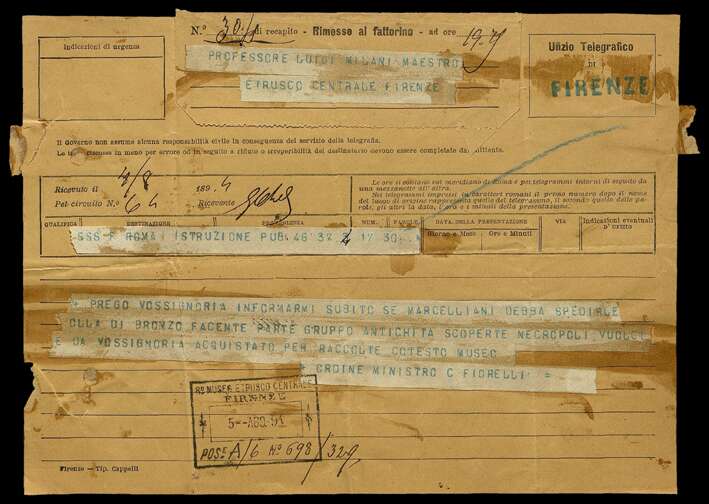 Indicazioni di urgenza
N.º 30/1 di recapito - Rimesso al fattorino - ad ore 19.
PROFESSORE LUIGI MILANI MAESTRO
ETRUSCO CENTRALE FIRENZE
Uffizio Telegrafico
DI
FIRENZE
Il Governo non assume alcuna responsabilità civile in conseguenza del servizio della telegrafia.
Le tasse riscosse in meno per errore od in seguito a rifiuto o irreperibilità del destinatario devono essere completate dal mittente.
Ricevuto il 4/8 189 4
Pel circuito N.º 64 Ricevente
Le ore si contano sul meridiano
e pei telegrammi interni di seguito da
una mezzanotte all'altra.
Nei telegrammi impressi in caratteri romani il primo numero dopo il nome
del luogo di origine rappresenta quello del telegramma, il secondo quello delle pa-
role, gli altri la data, l'ora e i minuti della presentazione.
QUALIFICA DESTINAZIONE PROVENIENZA NUM. PAROLE DATA DELLA PRESENTAZIONE VIA Indicazioni eventuali
Giorno e Mese Ore e Minuti D'UFFIZIO
SSS F ROMA ISTRUZIONE PUB 46 37 4 17 30
+ PREGO VOSSIGNORIA INFORMARMI SUBITO SE MARCELLIANI DEBBA SPEDIRLE
OLLA DI BRONZO FACENTE PARTE GRUPPO ANTICHITA SCOPERTE NECROPOLI VULCI
E DA VOSSIGNORIA ACQUISTATO PER RACCOLTE COTESTO MUSEO
+ ORDINE MINISTRO C FIORELLI =
Rº MUSEO ETRUSCO CENTRALE
FIRENZE
5 - AGO. 91
POSE A/6 Nº 698 / 329
Firenze - Tip. Cappelli